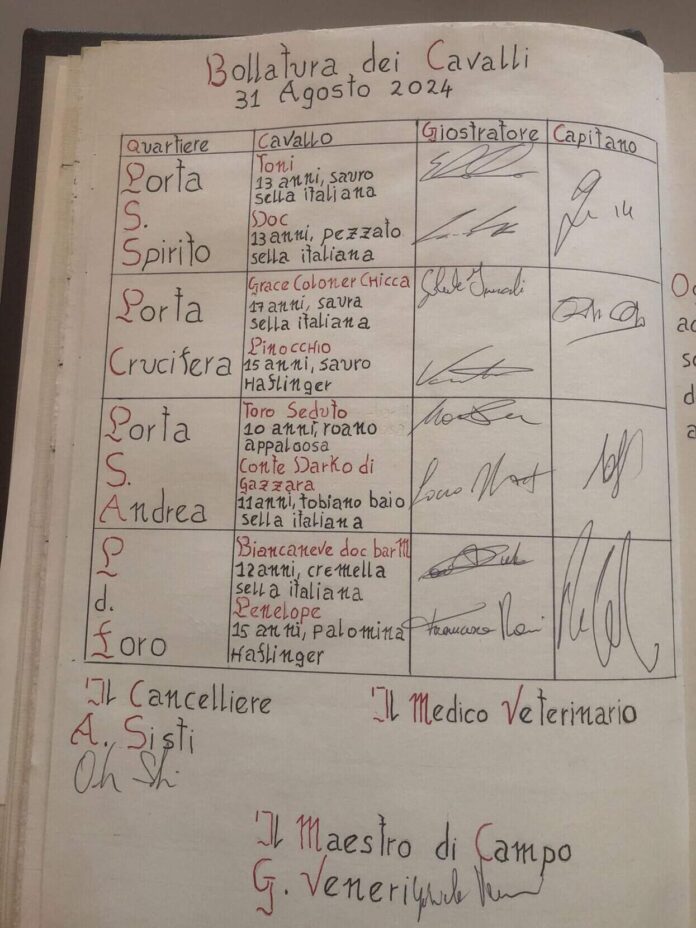 Bollatura dei Cavalli
31 Agosto 2024
Quartiere Cavallo Giostratore Capitano
Porta
S.
Spirito
Toni
13 anni, sauro
sella italiana
Doc
13 anni, pezzato
sella italiana
Porta
Crucifera
Grace Coloner Chicca
17 anni, saura
sella italiana
Pinocchio
15 anni, sauro
Haflinger
Porta
S.
Andrea
Toro Seduto
10 anni, roano
appaloosa
Conte Darko di
Gazzara
11 anni, tobiano baio
sella italiana
P
d.
Foro
Biancaneve doc bar M
12 anni, cremella
sella italiana
Penelope
15 anni, palomina
Haflinger
Il Cancelliere
A. Sisti
Il Medico Veterinario
Il Maestro di Campo
G. Veneri